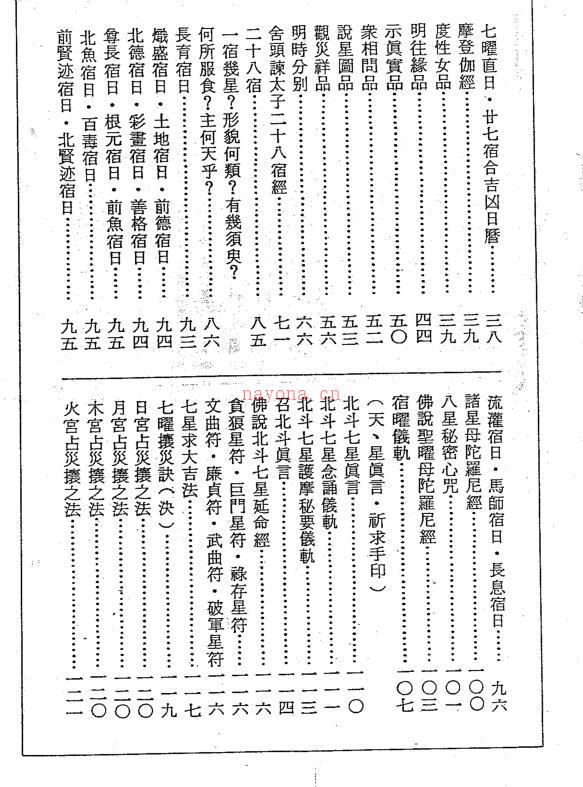 七曜直日・廿七宿合吉凶日曆……三八
摩登伽經……三九
度性女品……三九
明往緣品……四四
示眞實品……五〇
衆相問品……五二
說星圖品……五三
觀災祥品……五六
明時分別……六六
舍頭諫太子二十八宿經……七一
二十八宿……八五
一宿幾星？形貌何類？有幾須臾？
何所服食？主何天乎？……八六
長育宿日……九三
熾盛宿日・土地宿日・前德宿日……九四
北德宿日・彩畫宿日・善格宿日……九四
尊長宿日・根元宿日・前魚宿日……九五
北魚宿日・百毒宿日……九五
前賢迹宿日・北賢迹宿日……九五
流灌宿日・馬師宿日・長息宿日……九六
諸星母陀羅尼經……一〇〇
八星秘密心咒……一〇一
佛說聖曜母陀羅尼經……一〇三
宿曜儀軌……一〇七
（天、星眞言・祈求手印）
北斗七星眞言……一一〇
北斗七星念誦儀軌……一一一
北斗七星護摩秘要儀軌……一一三
召北斗眞言……一一四
佛說北斗七星延命經……一一六
貪狼星符・巨門星符・祿存星符……一一六
文曲符・廉貞符・武曲符・破軍星符……一一六
七星求大吉法……一一七
七曜攘災訣（決）……一一九
日宮占災攘之法……一二〇
月宮占災攘之法……一二〇
木宮占災攘之法……一二〇
火宮占災攘之法……一二一
nayona.cn